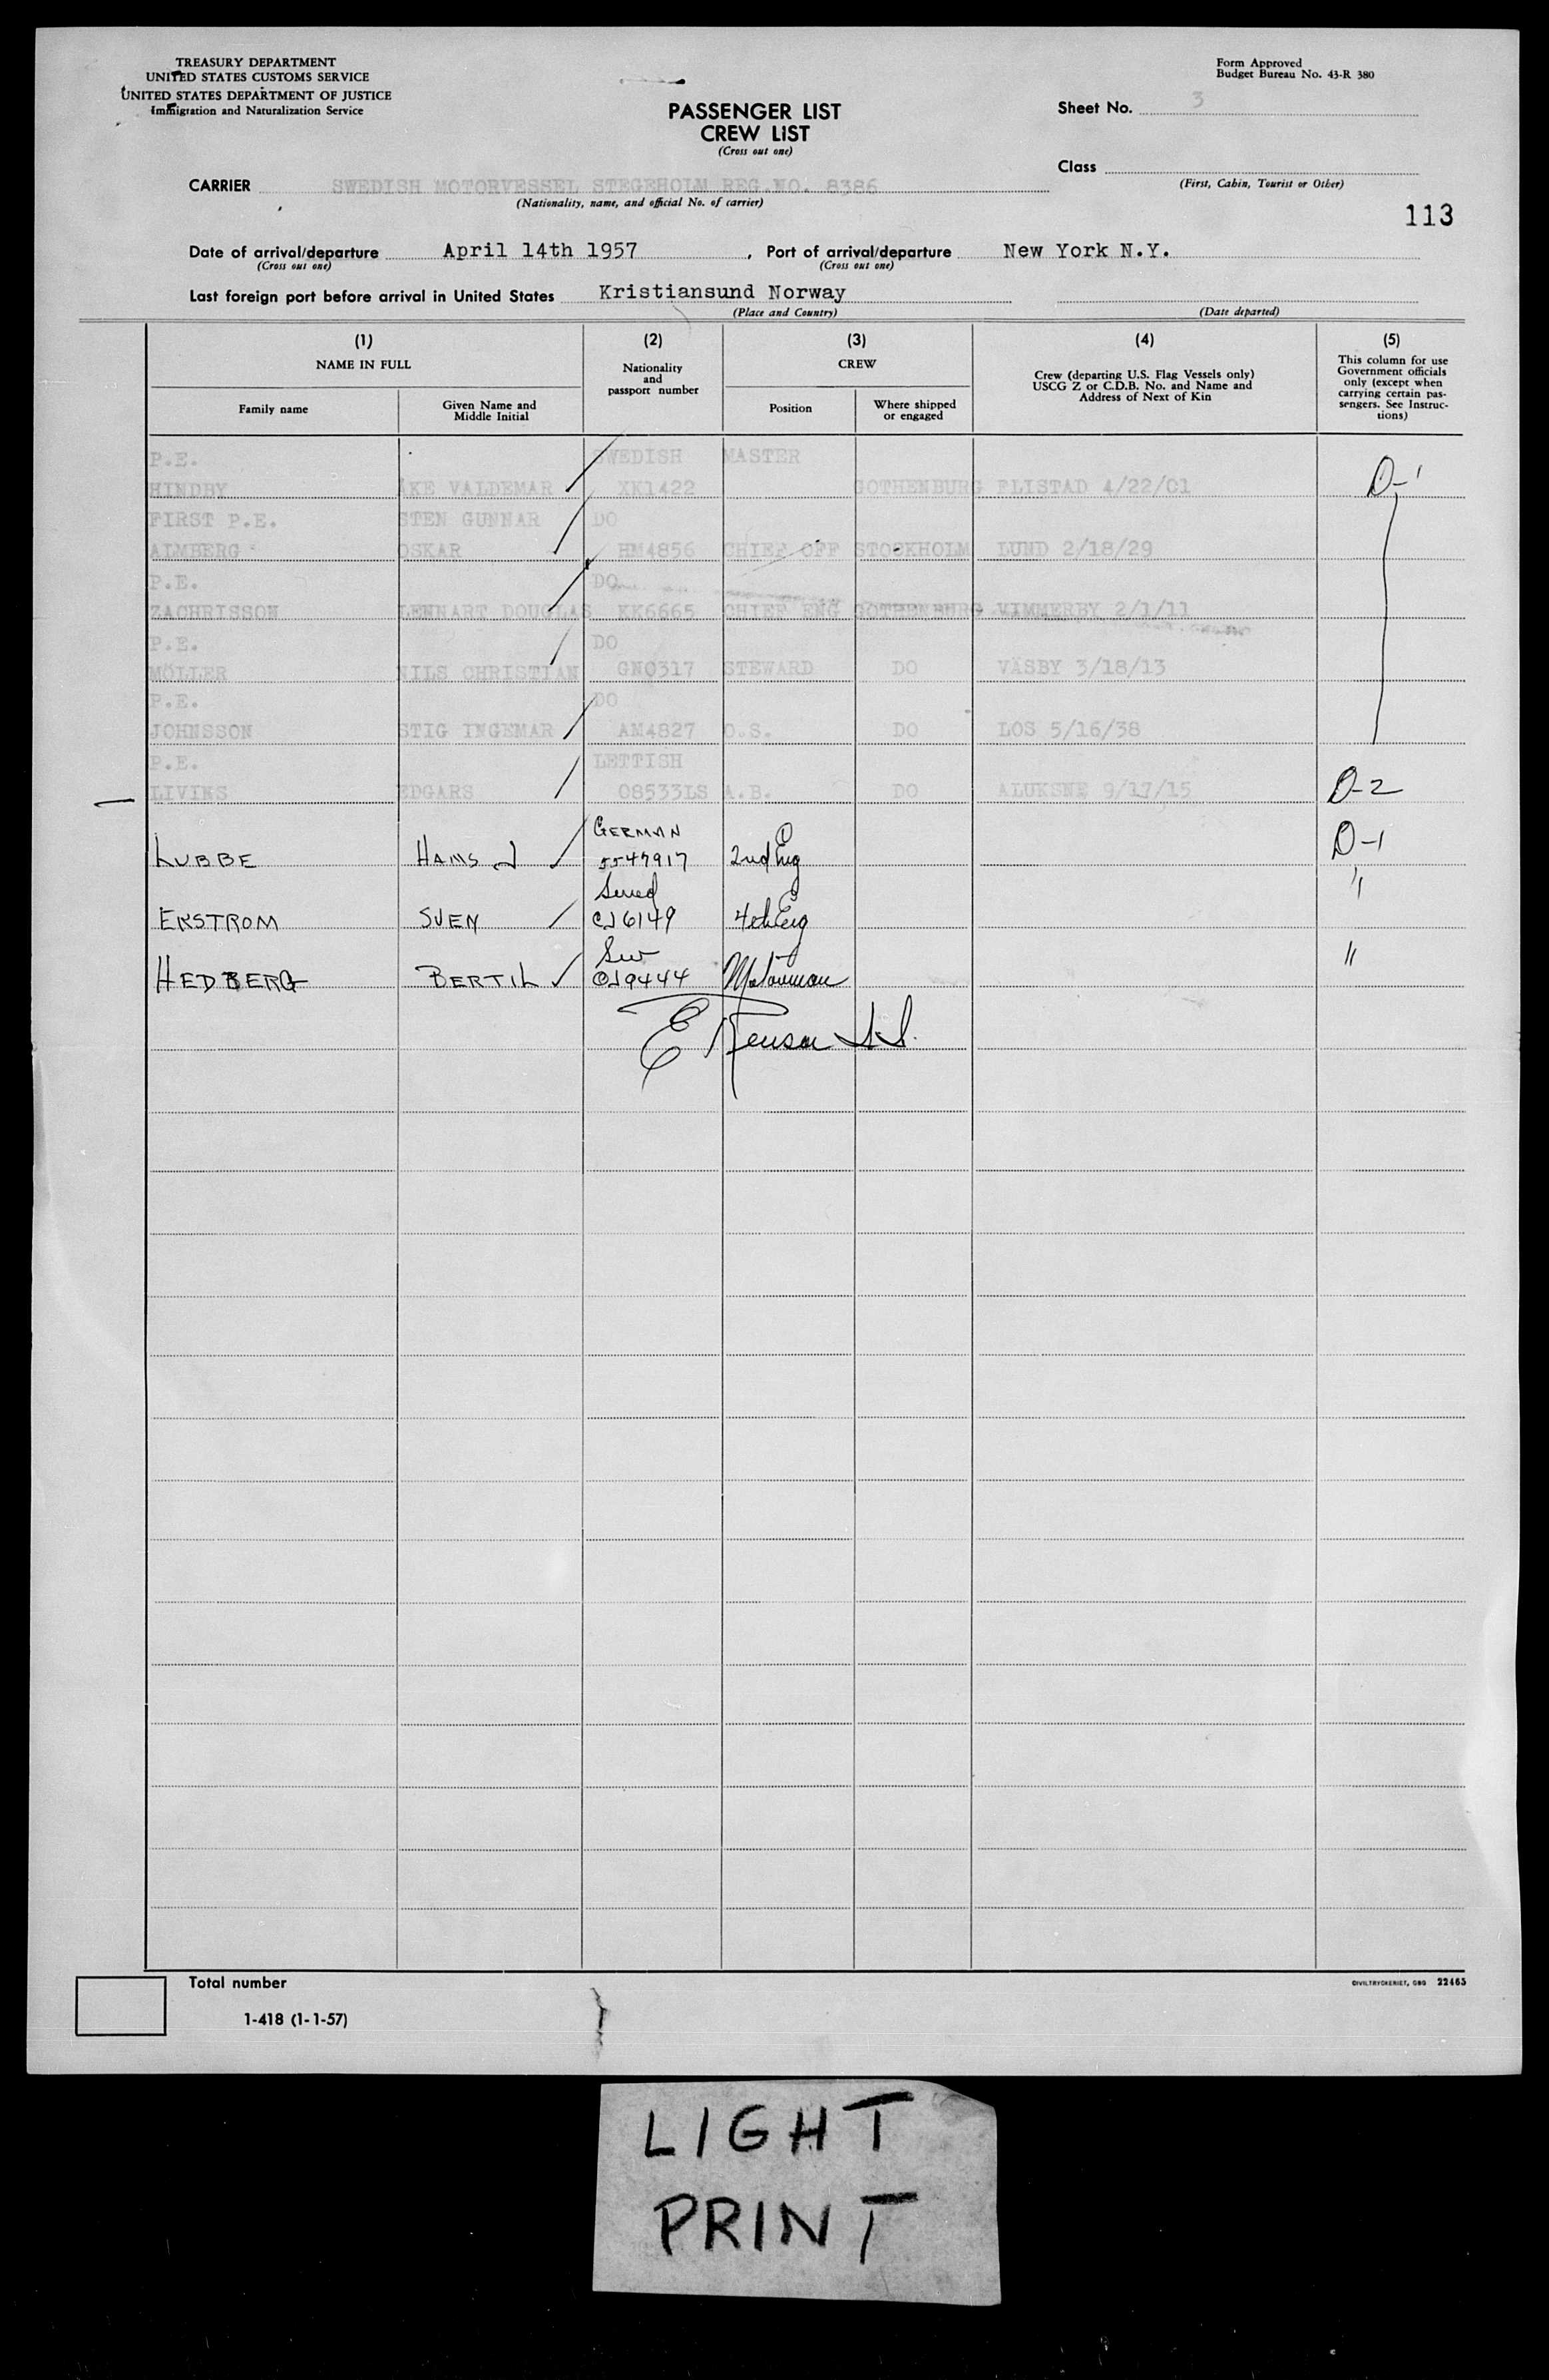 TREASURY DEPARTMENT
UNITED STATES CUSTOMS SERVICE
UNITED STATES DEPARTMENT OF JUSTICE
Immigration and Naturalization Service
Form Approved
Budget Bureau No. 43-R 380
PASSENGER LIST
CREW LIST
(Cross out one)
Sheet No. 3
CARRIER SWEDISH MOTORVESSEL STEGEHOLM REG.NO. 8386
(Nationality, name, and official No. of carrier)
Class
(First, Cabin, Tourist or Other)
113
Date of arrival/departure April 14th 1957, Port of arrival/departure New York N.Y.
(Cross out one) (Cross out one)
Last foreign port before arrival in United States Kristiansund Norway
(Place and Country) (Date departed)
(1) (2) (3) (4) (5)
NAME IN FULL
Family name
Given Name and
Middle Initial
Nationality
and
passport number
CREW
Position
Where shipped
or engaged
Crew (departing U.S. Flag Vessels only)
USCG Z or C.D.B. No. and Name and
Address of Next of Kin
This column for use
Government officials
only (except when
carrying certain pas-
sengers. See Instruc-
tions)
P.E. SWEDISH MASTER
HINDBY ÅKE VALDEMAR XK1422 GOTHENBURG FLISTAD 4/22/01 D-1
FIRST P.E. STEN GUNNAR DO
ALMBERG OSKAR HM4856 CHIEF OFF STOCKHOLM LUND 2/18/29
P.E. DO
ZACHRISSON LENNART DOUGLAS KK6665 CHIEF ENG GOTHENBURG VIMMERBY 2/1/11
P.E. DO
MÖLLER NILS CHRISTIAN GN0317 STEWARD DO VÄSBY 3/18/13
P.E. DO
JOHNSSON STIG INGEMAR AM4827 O.S. DO LOS 5/16/38
P.E. LETTISH
LIVIKS EDGARS 08533LS A.B. DO ALUKSNE 9/17/15 D-2
GERMAN
LUBBE HANS J 5547917 2nd Eng D-1
Swed
EKSTROM SVEN CJ6149 4th Eng "
Sw
HEDBERG BERTIL CJ9444 Motorman "
Total number
1-418 (1-1-57)
CIVILTRYCKERIET, GBG 22463
LIGHT
PRINT